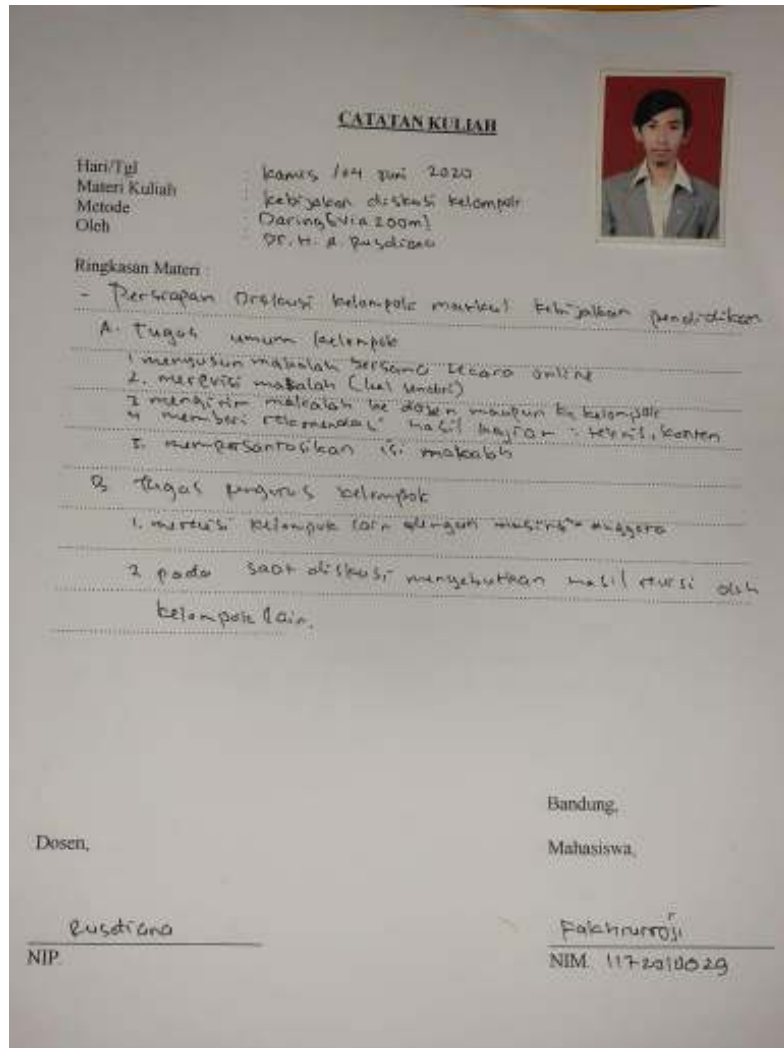 CATATAN KULIAH
Hari/Tgl : Kamis /04 Juni 2020
Materi Kuliah : Kebijakan diskusi kelompok
Metode : Daring (Via zoom)
Oleh : Dr. H. A. Rusdiana
Ringkasan Materi :
- Persiapan kelompok matkul kebijakan pendidikan
A. Tugas umum kelompok
1 menyusun makalah bersama secara online
2. merevisi makalah
3 mengirim makalah ke dosen maupun ke kelompok
4 memberi hasil kajian : teknis, konten
5. isi makalah
B tugas pengurus kelompok
1. merevisi kelompok lain dengan
2 pada saat diskusi menyebutkan hasil revisi oleh
kelompok lain.
Bandung,
Dosen,
Mahasiswa,
Rusdiana
Fakhrurroji
NIP
NIM.